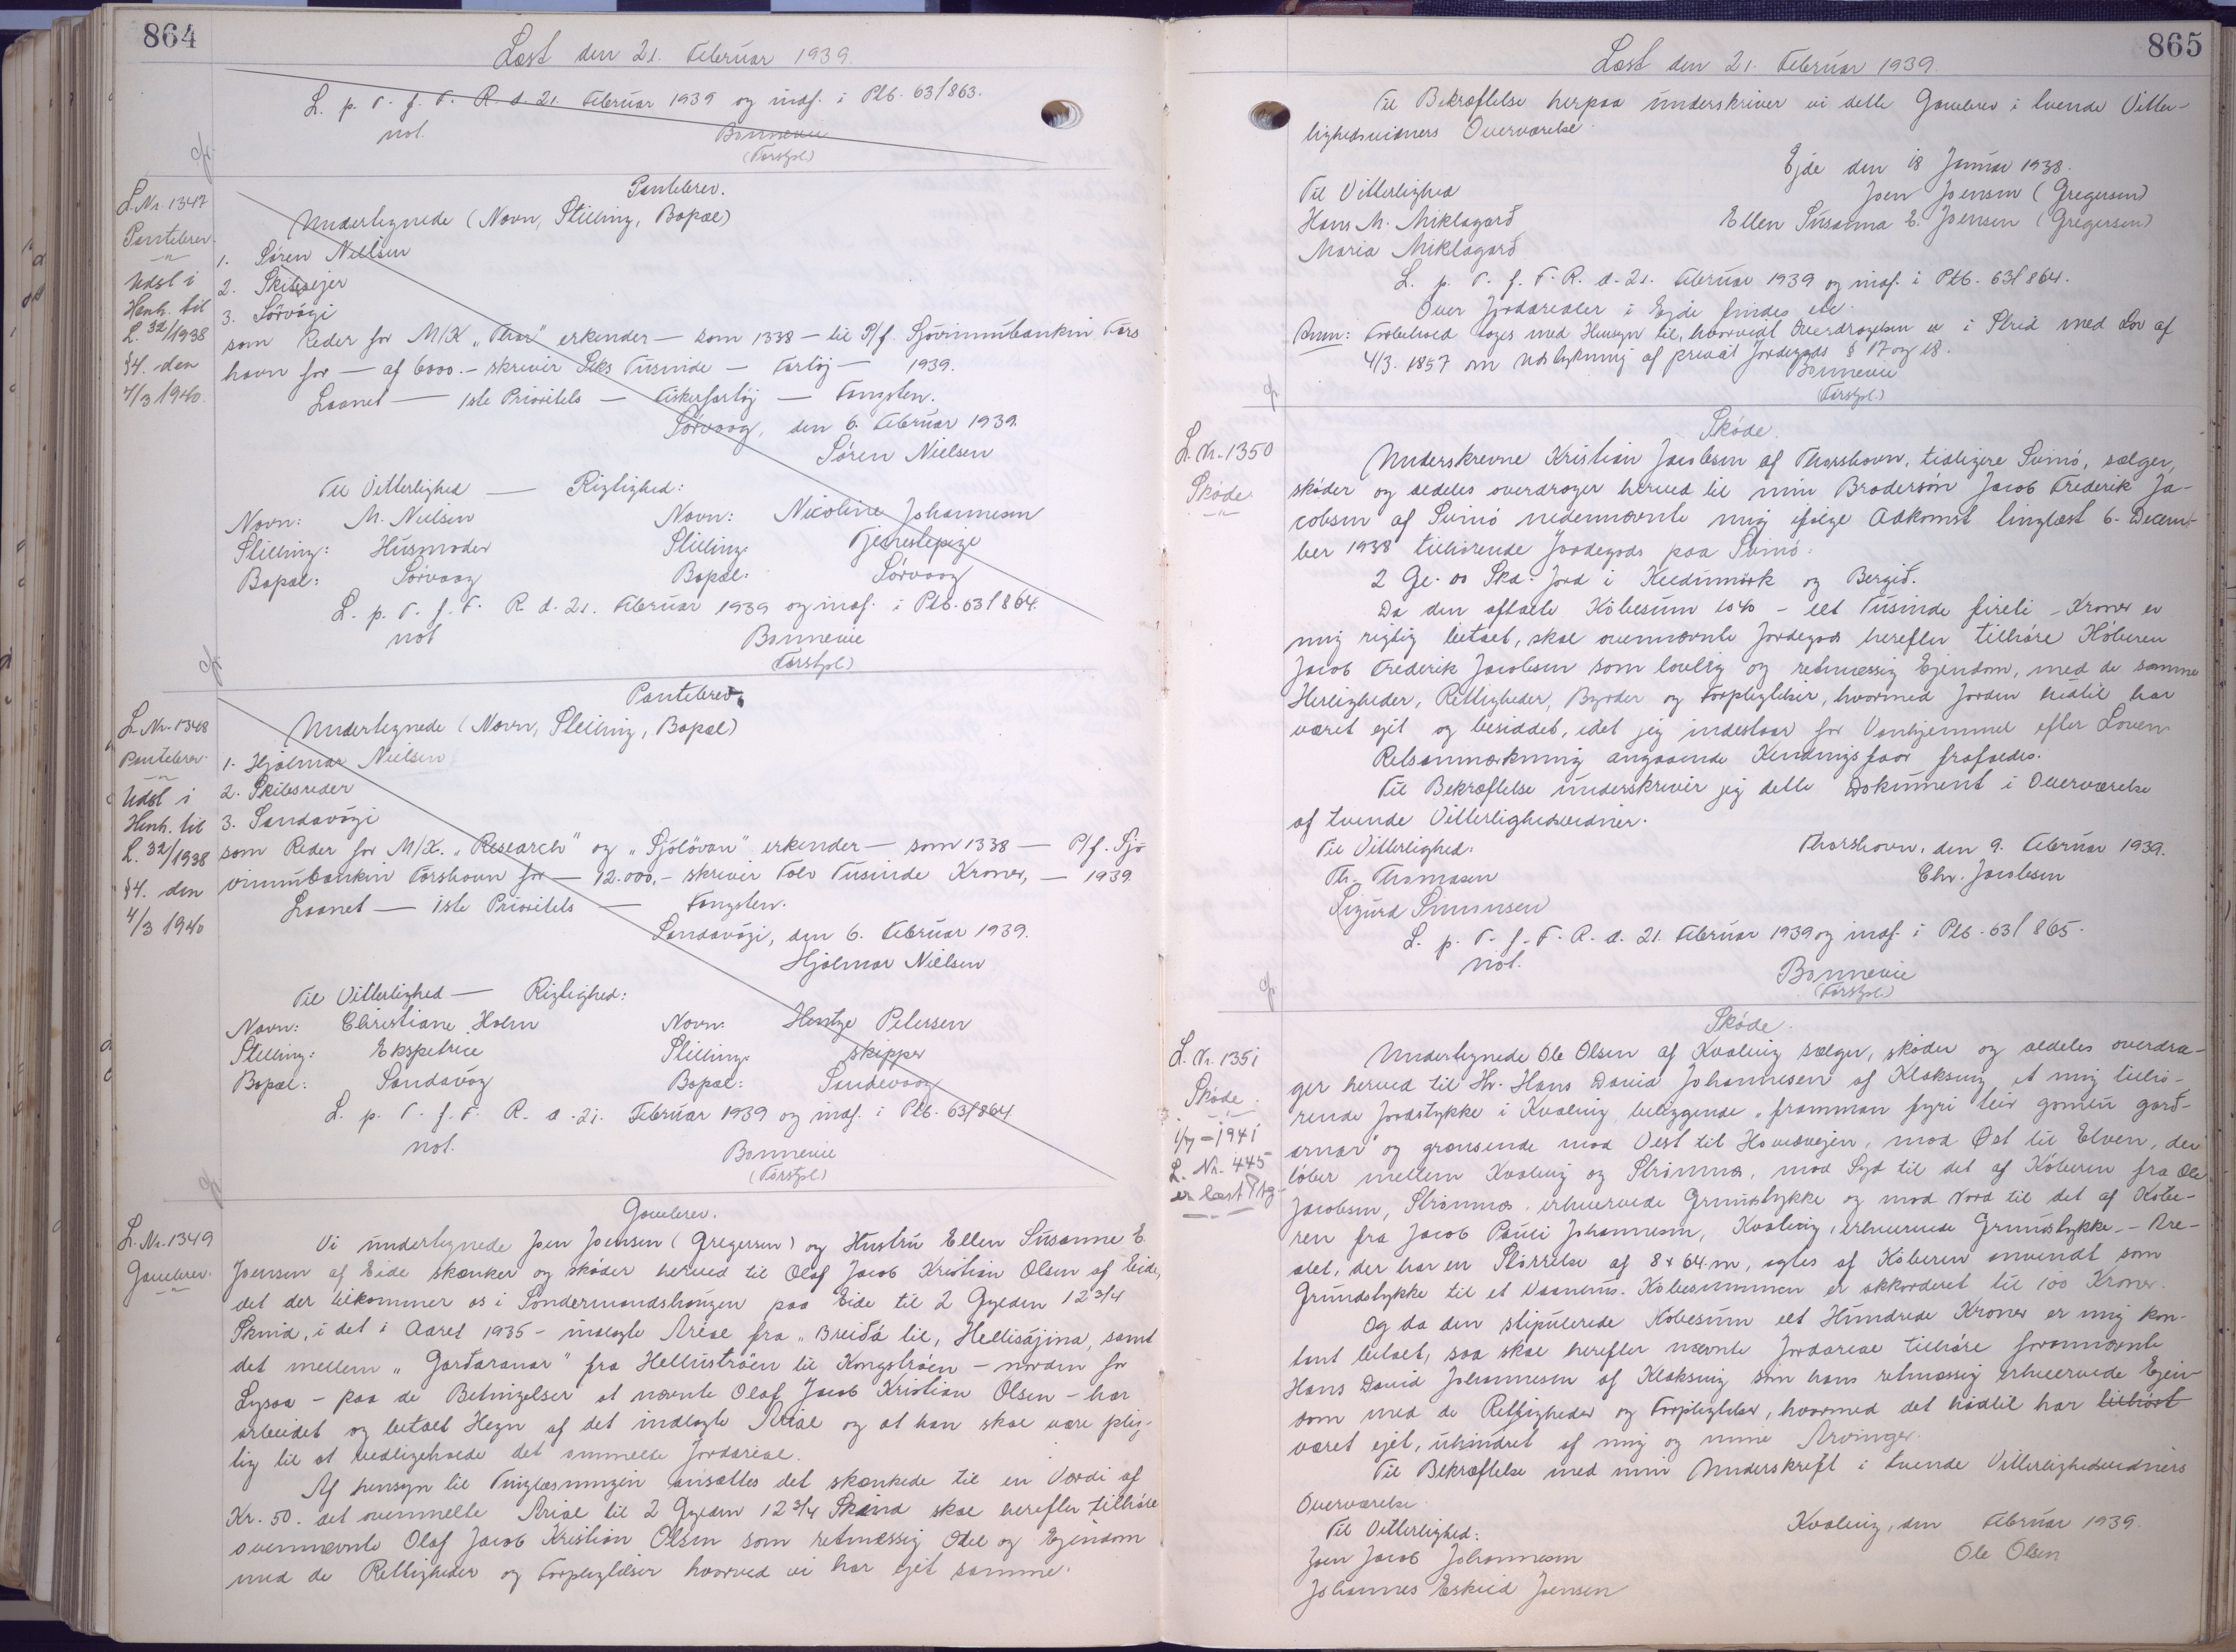 864
Læst den 21. Februar 1939.
L. p. T. f. F. R. d. 21. Februar 1939 og indf. i Ptb. 63/863.
not. Bonnevie
(Forstpl.)
L. Nr. 1347
Pantebrev.
Udsl i
Henh. til
L. 32/1938
§4. den
4/3 1940.
Pantebrev.
Undertegnede (Navn, Stilling, Bopæl)
1. Søren Nielsen
2. Skibsejer
3. Sörvági
som Reder for M/K „Thor" erkender — som 1338 — til P/f. Sjóvinnubankin Tórs
havn for — af 6000.- skriver Seks Tusinde — Fartöj — 1939.
Laanet — 1ste Prioritets — Fiskerfartöj — Fangsten.
Sörvaag, den 6. Februar 1939.
Sören Nielsen
Til Vitterlighed — Rigtighed:
Navn: M. Nielsen Navn: Nicoline Johannesen
Stilling: Husmoder Stilling: Tjenestepige
Bopæl: Sörvaag Bopæl: Sörvaag
L. p. T. f. F. R. d. 21. Februar 1939 og indf. i Ptb. 63/864.
not Bonnevie
(Forstpl.)
L. Nr. 1348
Pantebrev.
Udsl i
Henh. til
L. 32/1938
§4. den
4/3 1940
Pantebrev.
Undertegnede (Navn, Stilling, Bopæl)
1. Hjálmar Nielsen
2. Skibsreder
3. Sandavági
som Reder for M/K. „Research" og „Sjólövan" erkender — som 1338 — P/f. Sjó
vinnubankin Tórshavn for — 12.000,- skriver Tolv Tusinde Kroner, — 1939.
Laanet — 1ste Prioritets — Fangsten.
Sandavági, den 6. Februar 1939.
Hjálmar Nielsen
Til Vitterlighed — Rigtighed:
Navn: Christiane Holm Navn: Hentze Petersen
Stilling: Ekspetrice Stilling: skipper
Bopæl: Sandavág Bopæl: Sandevaag
L. p. T. f. F. R. d. 21. Februar 1939 og indf. i Ptb. 63/864.
not. Bonnevie
(Forstpl.)
L. Nr. 1349
Gavebrev.
Gavebrev.
Vi undertegnede Joen Joensen (Gregersen) og Hustru Ellen Susanne E.
Joensen af Eide skænker og skøder herved til Olaf Jacob Kristian Olsen af Eide,
det der tilkommer os i Søndermandshougen paa Eide til 2 Gylden 12 3/4
Skind, i det i Aaret 1935 - indlagte Areal fra „Breiðá til, Hellisájina, samt
det mellem „Garðaranar" fra Hellustróen til Kongstróen - norden for
Lysaa - paa de Betingelser at nævnte Olaf Jacob Kristian Olsen - har
arbeidet og betalt Hegn af det indlagte Areal og at han skal være plig-
tig til at vedligeholde det ommeldte Jordareal.
Af hensyn til Tinglæsningen ansættes det skænkede til en Værdi af
Kr. 50. det ovenmeldte Areal til 2 Gylden 12 3/4 Skind skal herefter tilhöre
ovennævnte Olaf Jacob Kristian Olsen som retmæssig Odel og Ejendom
med de Rettigheder og Forpligtelser hvorved vi har ejet samme.
865
Læst den 21. Februar 1939.
Til Bekræftelse herpaa underskriver vi dette Gavebrev i tvende Vitter-
lighedsvidners Overværelse.
Ejde den 18 Januar 1938.
Til Vitterlighed Joen Joensen (Gregersen)
Hans M. Miklagarð Ellen Susanna E. Joensen (Gregersen)
Maria Miklagarð
L. p. T. f. F. R. d. 21. Februar 1939 og indf. i Ptb. 63/864.
Over Jordarealer i Ejde findes
Anm: Forbehold tages med Hensyn til, hvorvidt Overdragelsen er i Strid med Lov af
4/3. 1857 om Udstykning af privat Jordegods § 17 og 18.
Bonnevie
(Forstpl.)
L. Nr. 1350
Skøde.
Skøde.
Underskrevne Kristian Jacobsen af Thorshavn, tidligere Svinö, sælger,
skøder og aldeles overdrager herved til min Brodersøn Jacob Frederik Ja-
cobsen af Svinö nedennævnte mig ifølge Adkomst tinglæst 6. Decem-
ber 1938 tilhørende Jordegods paa Svinö:
2 Gl. 00 Skd. Jord i Keldumörk og Bergið.
Da den aftalte Købesum 1040 - ett Tusinde fireti - Kroner er
mig rigtig betalt, skal ovennævnte Jordegods herefter tilhöre Köberen
Jacob Frederik Jacobsen som lovlig og retmæssig Ejendom, med de samme
Herligheder, Rettigheder, Byrder og Forpligtelser, hvormed Jorden hidtil har
været ejet og besiddet, idet jeg indestaar for Vanhjemmel efter Loven.
Retsanmærkning angaaende Kendingsfaar frafaldes.
Til Bekræftelse underskriver jeg dette Dokument i Overværelse
af tvende Vitterlighedsvidner.
Til Vitterlighed: Thorshavn, den 9. Februar 1939.
Th. Thomasen Chr. Jacobsen
Sigurd Simonsen
L. p. T. f. F. R. d. 21. Februar 1939 og indf. i Ptb. 63/865.
not. Bonnevie
(Forstpl.)
L. Nr. 1351
Skøde.
1/7-1941
L. Nr. 445
er læst
Skøde.
Undertegnede Ole Olsen af Kvalvig sælger, skøder og aldeles overdra-
ger herved til Hr. Hans David Johannesen af Klaksvig et mig tilhø-
rende Jordstykke i Kvalvig beliggende „framman fyri teir gomlu garð-
arnar" og grænsende mod Vest til Hovedvejen, mod Øst til Elven, der
løber mellem Kvalvig og Strømnæs, mod Syd til det af Köberen fra Ole
Jacobsen, Strømnæs erhvervede Grundstykke og mod Nord til det af Købe-
ren fra Jacob Pauli Johannesen, Kvalvig, erhvervede Grundstykke. - Are-
alet, der har en Størrelse af 8 x 64 m, agtes af Köberen anvendt som
Grundstykke til et Vaanehus. Købesummen er akkorderet til 100 Kroner.
Og da den stipulerede Købesum ett Hundrede Kroner er mig kon-
tant betalt, saa skal herefter nævnte Jordareal tilhöre forannævnte
Hans David Johannesen af Klaksvig som hans retmæssig erhvervede Ejen-
dom med de Rettigheder og Forpligtelser, hvormed det hidtil har tilhørt
været ejet, uhindret af mig og mine Arvinger.
Til Bekræftelse med min Underskrift i tvende Vitterlighedsvidners
Overværelse.
Til Vitterlighed: Kvalvig, den Februar 1939.
Joen Jacob Johannesen Ole Olsen
Johannes Eskild Joensen